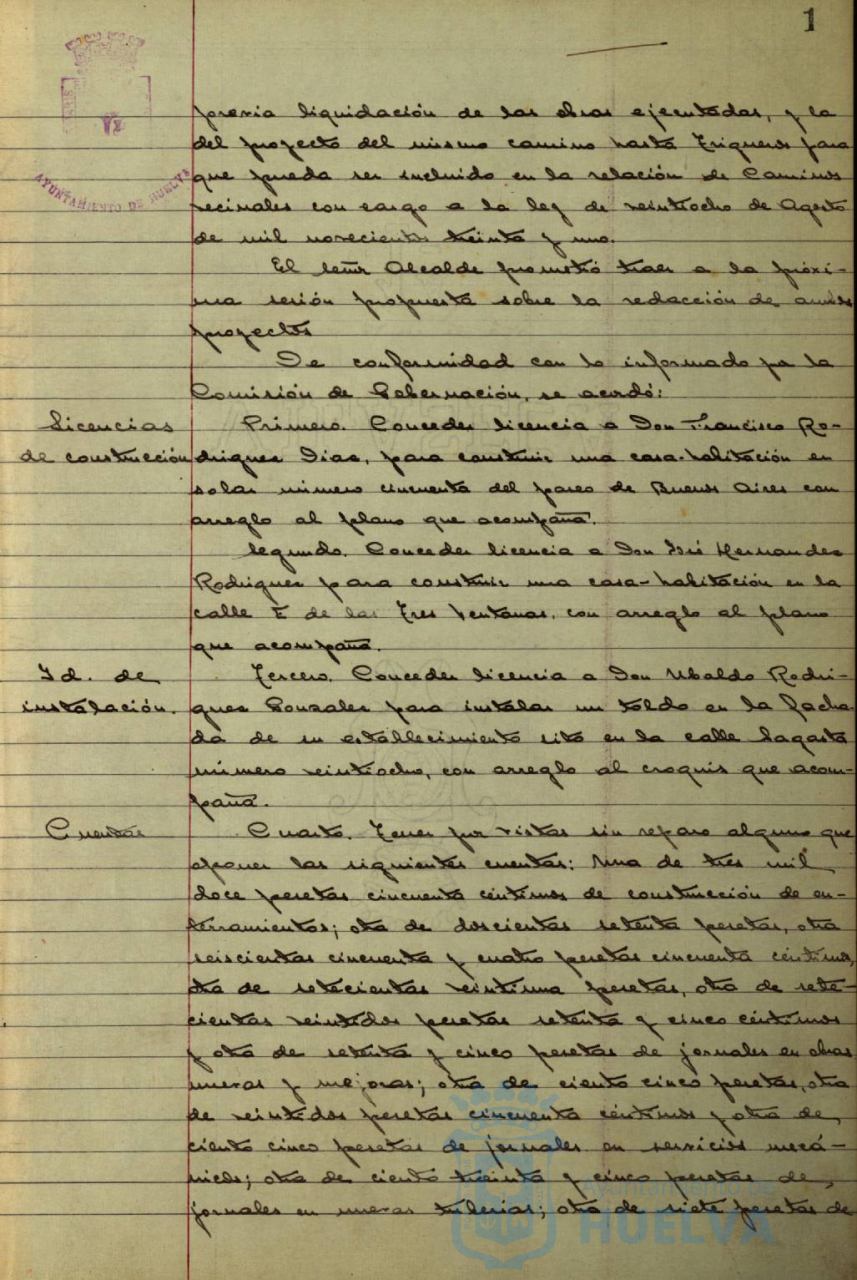 1
AYUNTAMIENTO DE HUELVA
previa liquidación de las obras ejecutadas, y la
del proyecto del mismo camino hasta Trigueros para
que pueda ser incluido en la relación de Caminos
vecinales con cargo a la ley de veintiocho de Agosto
de mil novecientos treinta y uno.
El señor Alcalde prometió traer a la próxi-
ma sesión propuesta sobre la redacción de ambos
proyectos
De conformidad con lo informado por la
Comisión de Gobernación, se acordó:
Licencias
de construcción
Primero. Conceder licencia a Don Francisco Ro-
driguez Diaz, para construir una casa-habitación en
solar número cincuenta del paseo de Buenos Aires con
arreglo al plano que acompaña.
Segundo. Conceder licencia a Don José Hernandez
Rodriguez para construir una casa-habitación en la
calle E de las Tres Ventanas, con arreglo al plano
que acompaña.
Id. de
instalación.
Tercero. Conceder licencia a Don Ubaldo Rodri-
guez Gonzalez para instalar un toldo en la facha
da de su establecimiento sito en la calle Sagasta
número veintiocho, con arreglo al croquis que acom-
paña.
Cuentas
Cuarto. Tener por vistas sin reparo alguno que
oponer las siguientes cuentas: Una de tres mil
doce pesetas cincuenta céntimos de construcción de en-
terramientos; otra de doscientas setenta pesetas, otra
seiscientas cincuenta y cuatro pesetas cincuenta céntimos,
otra de setecientas veintiuna pesetas, otra de sete-
cientas veintidos pesetas setenta y cinco céntimos
y otra de setenta y cinco pesetas de jornales en obras
nuevas y mejoras; otra de ciento cinco pesetas, otra
de veintidos pesetas cincuenta céntimos y otra de
ciento cinco pesetas de jornales en servicios mecá-
nicos; otra de ciento treinta y cinco pesetas de
jornales en nuevas tuberias; otra de siete pesetas de
Ayuntamiento de
HUELVA